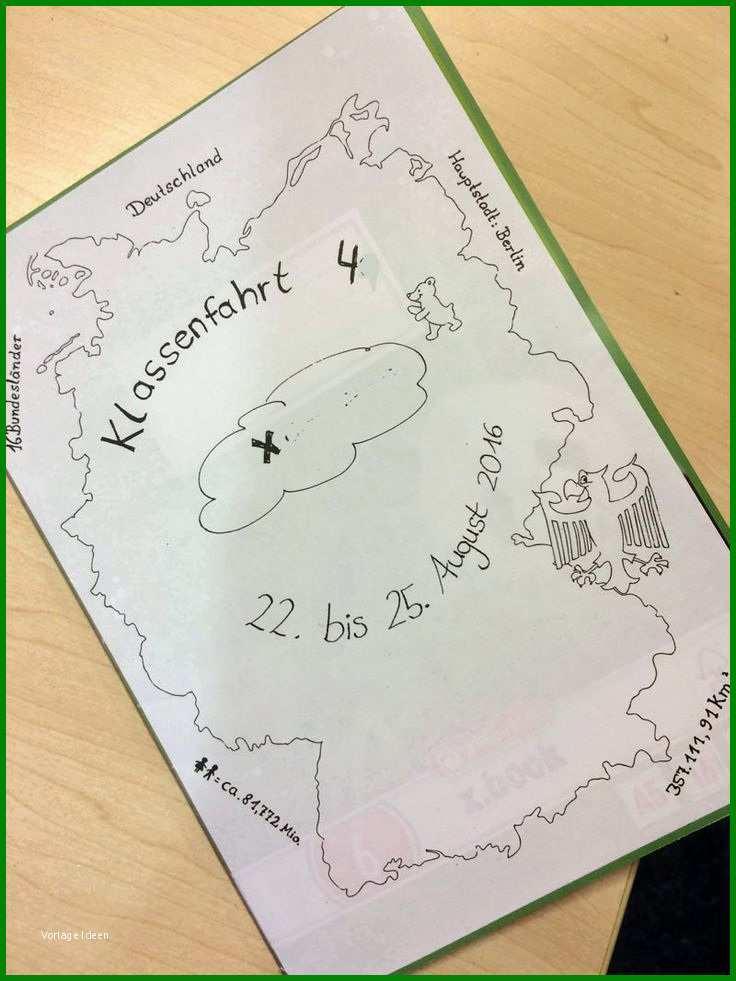 Deutschland
Hauptstadt: Berlin
16 Bundesländer
Klassenfahrt 4
22. bis 25. August 2016
= ca. 81,772 Mio.
357.111,91 Km²
Vorlage Ideen